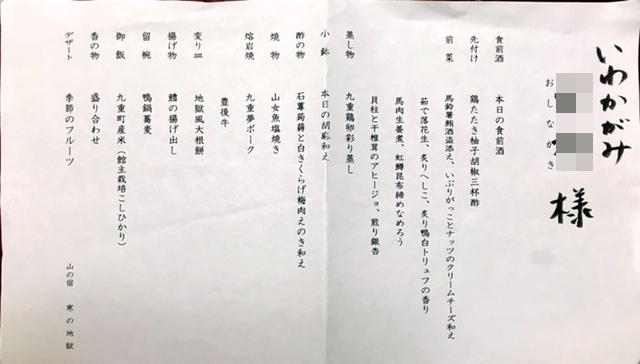 いわかがみ
様
おしながき
食前酒　本日の食前酒
先付け　鶏たたき柚子胡椒三杯酢
前菜　馬鈴薯鮪酒盗添え、いぶりがっことナッツのクリームチーズ和え
茹で落花生、炙りへしこ、炙り鴨白トリュフの香り
馬肉生姜煮、虹鱒昆布締めなめろう
貝柱と干椎茸のアヒージョ、煎り銀杏
蒸し物　九重鶏卵彩り蒸し
小鉢　本日の胡麻和え
酢の物　石蓴蒟蒻と白きくらげ梅肉えのき和え
焼物　山女魚塩焼き
熔岩焼　九重夢ポーク
豊後牛
変り皿　地獄風大根餅
揚げ物　鱧の揚げ出し
留椀　鴨鍋蕎麦
御飯　九重町産米（館主栽培こしひかり）
香の物　盛り合わせ
デザート　季節のフルーツ
山の宿　寒の地獄